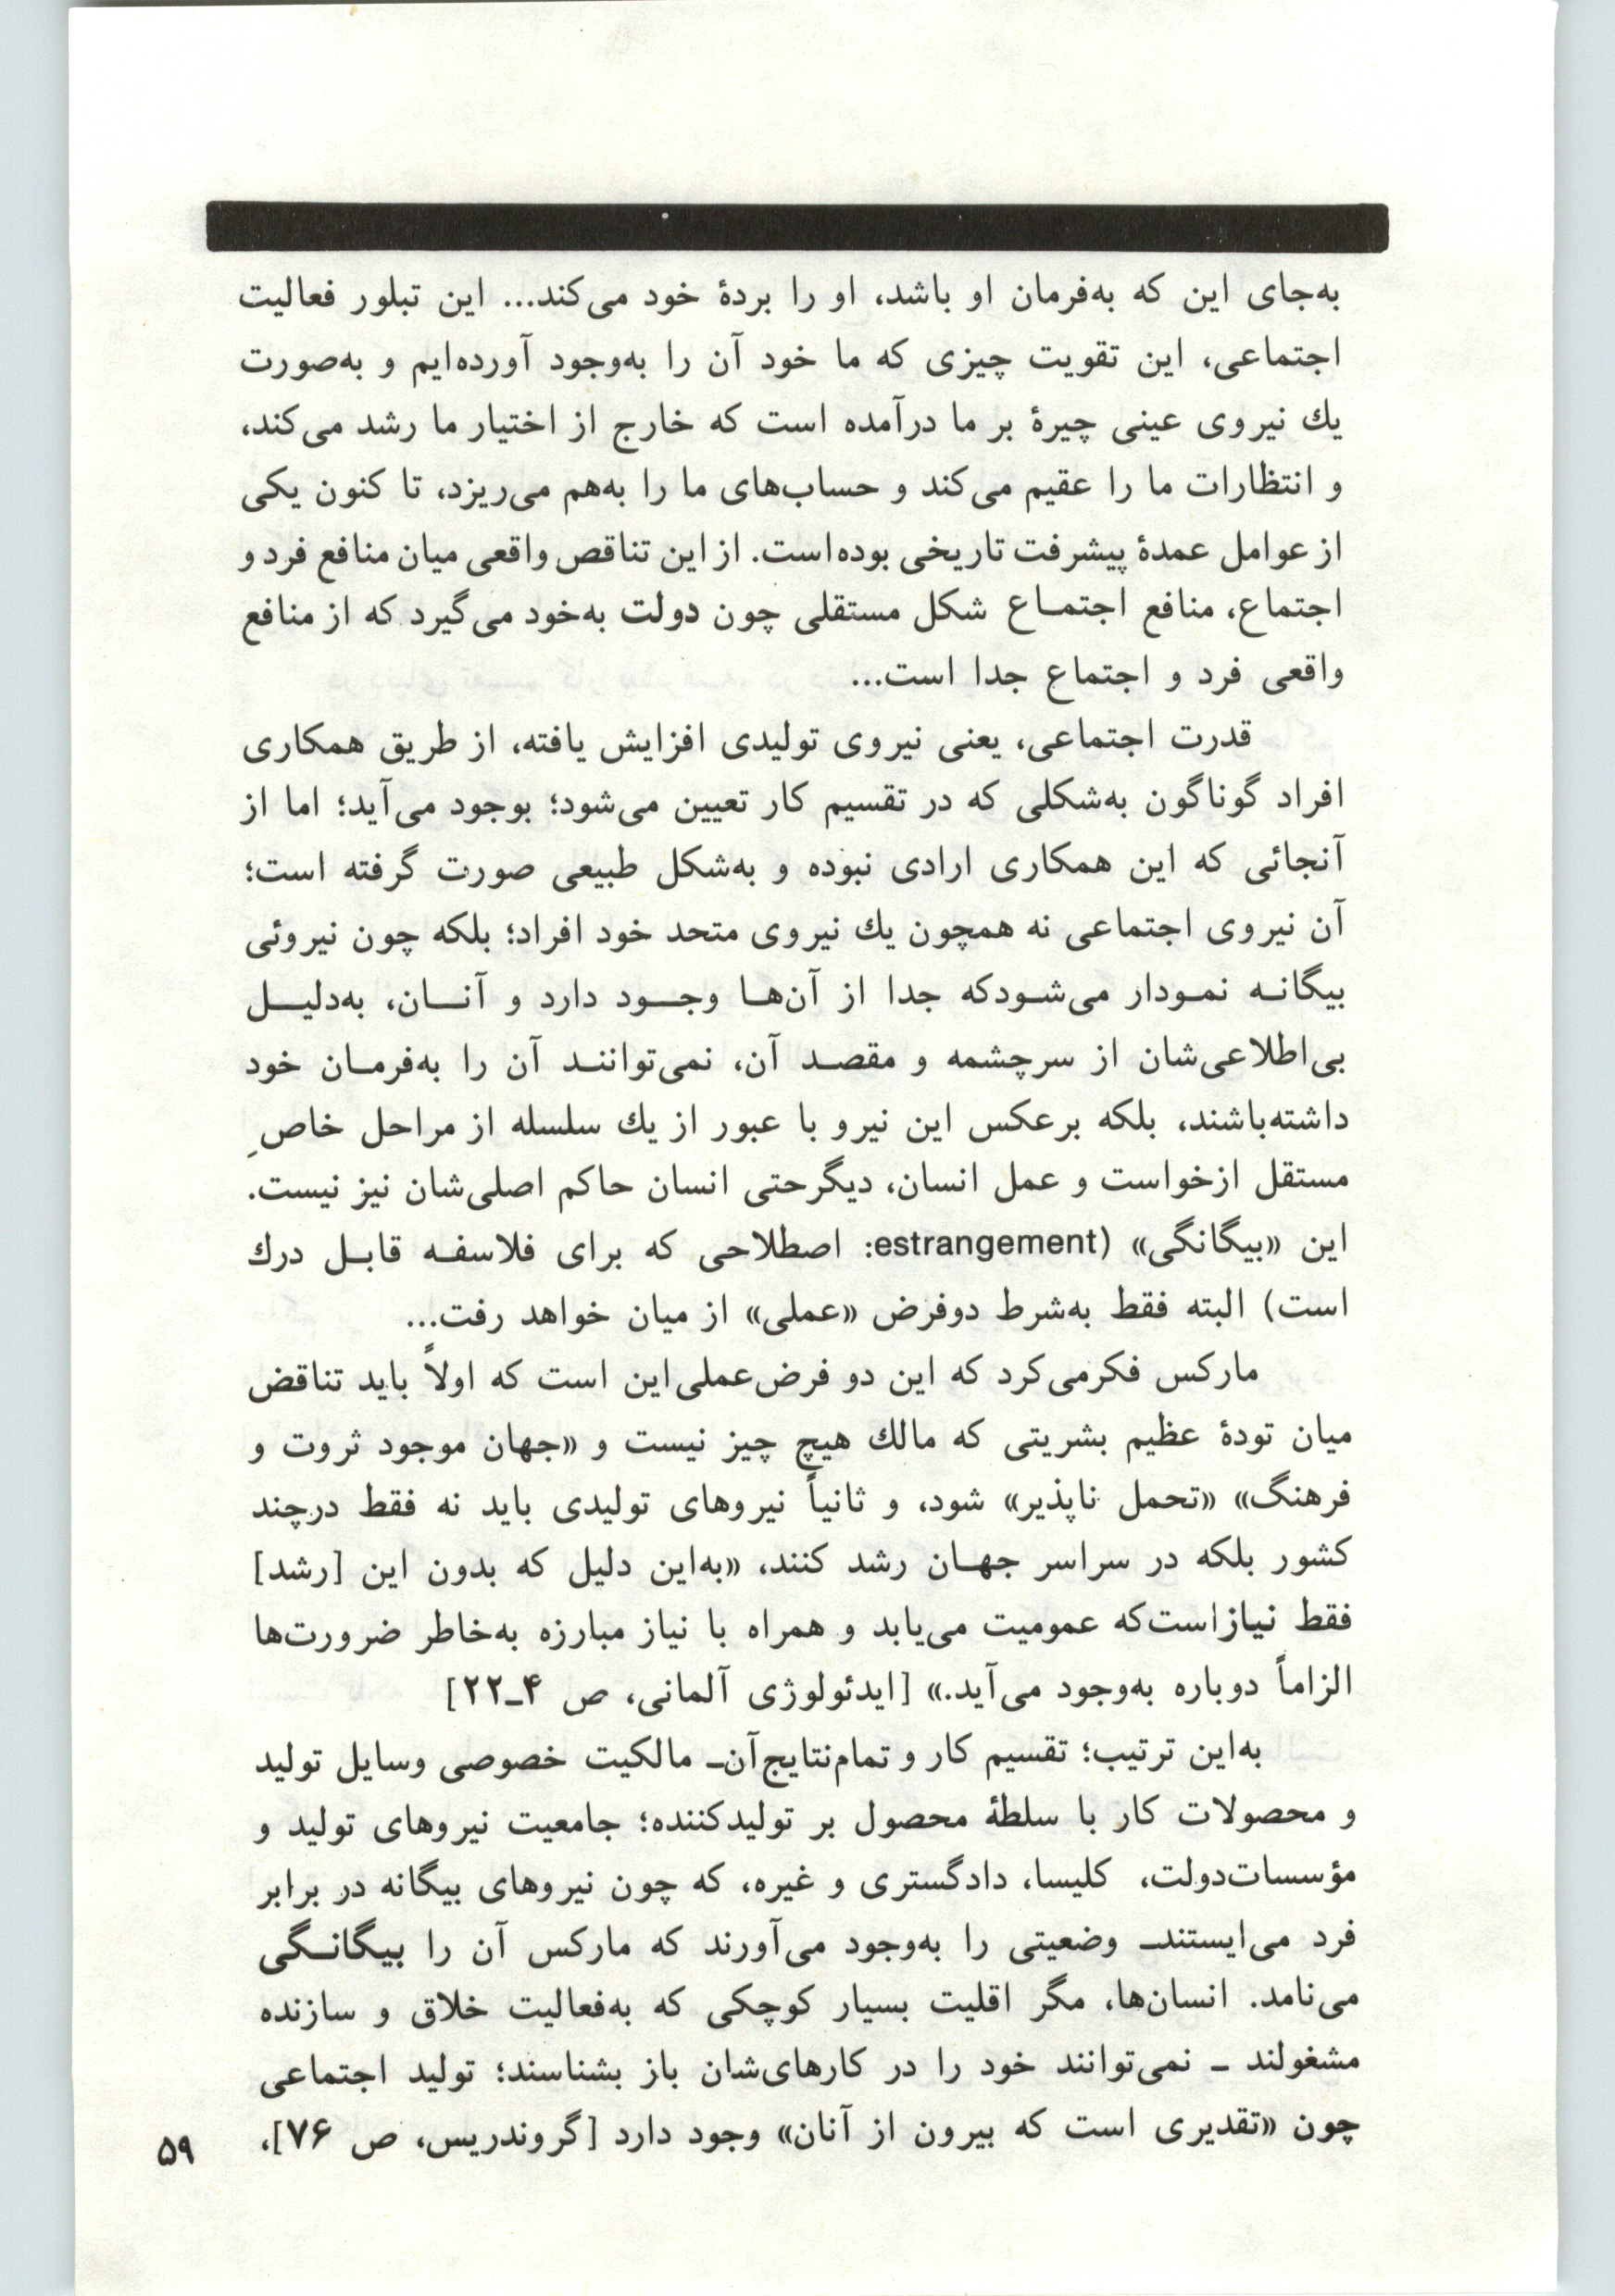 به‌جای این که به‌فرمان او باشد، او را بردهٔ خود می‌کند... این تبلور فعالیت
اجتماعی، این تقویت چیزی که ما خود آن را به‌وجود آورده‌ایم و به‌صورت
یك نیروی عینی چیرهٔ بر ما درآمده است که خارج از اختیار ما رشد می‌کند،
و انتظارات ما را عقیم می‌کند و حساب‌های ما را به‌هم می‌ریزد، تا کنون یکی
از عوامل عمدهٔ پیشرفت تاریخی بوده‌است. از این تناقص واقعی میان منافع فرد و
اجتماع، منافع اجتمـاع شکل مستقلی چون دولت به‌خود می‌گیرد که از منافع
واقعی فرد و اجتماع جدا است...
قدرت اجتماعی، یعنی نیروی تولیدی افزایش یافته، از طریق همکاری
افراد گوناگون به‌شکلی که در تقسیم کار تعیین می‌شود؛ بوجود می‌آید؛ اما از
آنجائی که این همکاری ارادی نبوده و به‌شکل طبیعی صورت گرفته است؛
آن نیروی اجتماعی نه همچون یك نیروی متحد خود افراد؛ بلکه چون نیروئی
بیگانـه نمـودار می‌شـودکه جدا از آن‌هـا وجـود دارد و آنـان، به‌دلیـل
بی‌اطلاعی‌شان از سرچشمه و مقصـد آن، نمی‌تواننـد آن را به‌فرمـان خود
داشته‌باشند، بلکه برعکس این نیرو با عبور از یك سلسله از مراحل خاصِ
مستقل ازخواست و عمل انسان، دیگرحتی انسان حاکم اصلی‌شان نیز نیست.
این «بیگانگی» (estrangement: اصطلاحی که برای فلاسفـه قابـل درك
است) البته فقط به‌شرط دوفرض «عملی» از میان خواهد رفت...
مارکس فکرمی‌کرد که این دو فرض‌عملی‌این است که اولاً باید تناقض
میان تودهٔ عظیم بشریتی که مالك هیچ چیز نیست و «جهان موجود ثروت و
فرهنگ» «تحمل ناپذیر» شود، و ثانیاً نیروهای تولیدی باید نه فقط درچند
کشور بلکه در سراسر جهـان رشد کنند، «به‌این دلیل که بدون این [رشد]
فقط نیازاست‌که عمومیت می‌یابد و همراه با نیاز مبارزه به‌خاطر ضرورت‌ها
الزاماً دوباره به‌وجود می‌آید.» [ایدئولوژی آلمانی، ص ۴ـ۲۲]
به‌این ترتیب؛ تقسیم کار و تمام‌نتایج‌آن‌ـ مالکیت خصوصی وسایل تولید
و محصولات کار با سلطهٔ محصول بر تولیدکننده؛ جامعیت نیروهای تولید و
مؤسسات‌دولت، کلیسا، دادگستری و غیره، که چون نیروهای بیگانه در برابر
فرد می‌ایستندـ وضعیتی را به‌وجود می‌آورند که مارکس آن را بیگانـگی
می‌نامد. انسان‌ها، مگر اقلیت بسیار کوچکی که به‌فعالیت خلاق و سازنده
مشغولند ـ نمی‌توانند خود را در کارهای‌شان باز بشناسند؛ تولید اجتماعی
چون «تقدیری است که بیرون از آنان» وجود دارد [گروندریس، ص ۷۶]،
۵۹